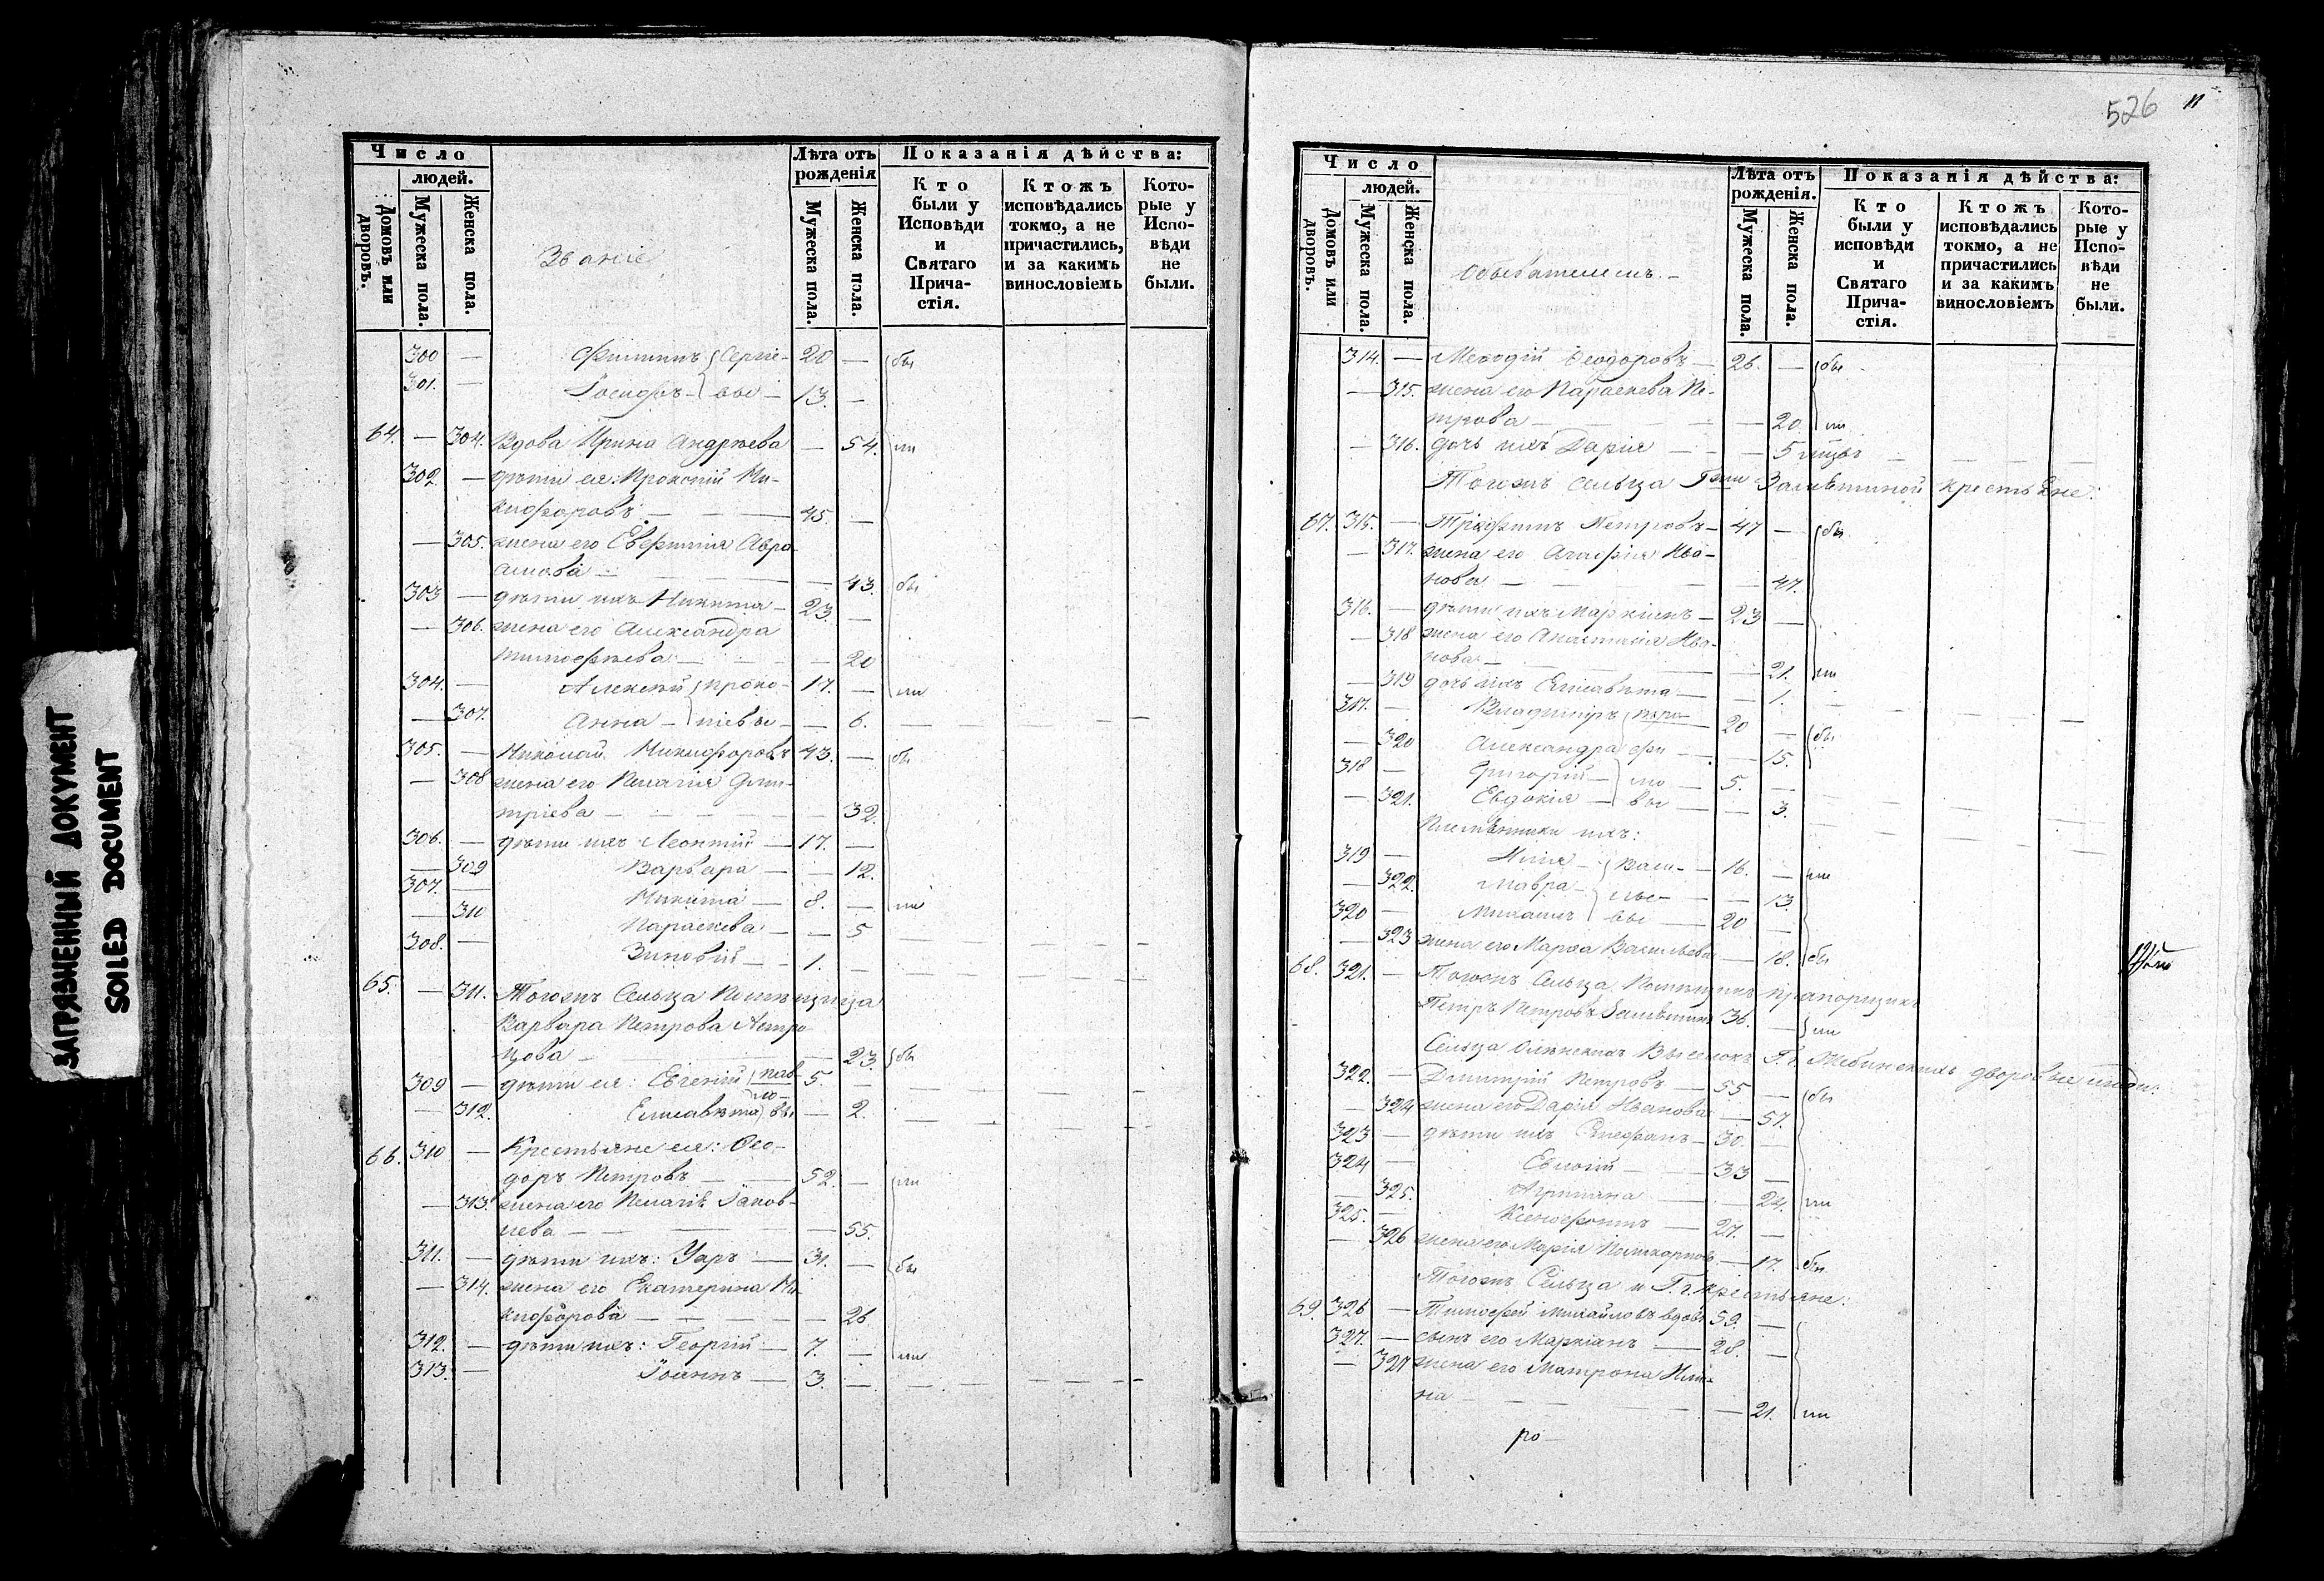 ЗАГРЯЗНЕННЫЙ ДОКУМЕНТ
SOILED DOCUMENT
Число
людей.
Домовъ или дворовъ.
Мужеска пола.
Женска пола.
Званіе
Лѣта отъ рожденія
Мужеска пола.
Женска пола.
Показанія дѣйства:
Кто были у Исповѣди и Святаго Прича-стія.
Ктожъ исповѣдались токмо, а не причастились, и за какимъ винословіемъ
Кото-рые у Испо-вѣди не были.
300 — Филиппъ Сергіе- 20 — бы
301. — Іосифъ вы — 13. —
64. — 304. Вдова Ирина Андреева — 54. ли
302. — дѣти ея: Прокопій Ни-
кифоровъ — 45. —
— 305. жена его Евфимія Авра-
амова — 43. бы
303 — дѣти ихъ Никита — 23. —
— 306. жена его Александра
Тимофѣева — 20
304. — Алексѣй Проко- 17. — ли
— 307. Анна — піевы — 6.
305. — Николай Никифоровъ 43. — бы
— 308 жена его Пелагія Дми-
тріева — 32.
306. — дѣти ихъ Леонтій — 17. —
— 309 Варвара — 12.
307. — Никита — 8. — ли
— 310 Параскева — 5
308. — Зиновій — 1. —
65. — 311. Тогожъ Сельца Помѣщица
Варвара Петрова
цова — 23. бы
309 — дѣти ея: Евгеній Пав- 5. —
ло-
— 312. Елисавета вы — 2.
66. 310 — Крестьяне ея: Ѳео-
доръ Петровъ — 52. — ли
— 313. жена его Пелагія Іаков-
лева — 55.
311. — дѣти ихъ: Уаръ — 31. — бы
— 314. жена его Екатерина Ни-
кифорова — 26
312. — дѣти ихъ: Георгій — 7. — ли
313. — Іоаннъ — 3. —
526 11
Число
людей.
Домовъ или дворовъ.
Мужеска пола.
Женска пола.
Обывателемъ.
Лѣта отъ рожденія.
Мужеска пола.
Женска пола.
Показанія дѣйства:
Кто были у исповѣди и Святаго Прича-стія.
Ктожъ исповѣдались токмо, а не причастились и за какимъ винословіемъ
Кото-рые у Испо-вѣди не были.
314. — Меѳодій Ѳеодоровъ — 26. — бы
— 315. жена его Параскева Пе-
трова — 20 ли
— 316. дочь ихъ Дарія — 5
Тогожъ Сельца Гжи крестьяне:
67. 315. — Трифонъ Петровъ — 47 — бы
— 317. жена его Агафія Ива-
нова — 47.
316. — дѣти ихъ Маркіанъ — 23 —
— 318 жена его Анастасія Ива-
нова — 21. ли
— 319 дочь ихъ Елисавета — 1.
317. — Владиміръ 20 —
— 320 Александра фи — 15. бы
318 — Григорій — мо — 5. —
— 321. Евдокія — вы — 3.
Племянники ихъ:
319 — Илія — Васи- — 16. — ли
— 322. Мавра — лье- — 13.
320 — Михаилъ вы — 20 —
— 323 жена его Марѳа Васильева — 18. бы
68. 321. — Тогожъ Сельца Помѣщикъ прапорщикъ
Петръ Петровъ 36. — ли
Сельца Выселокъ Г. дворовые люди:
322. — Димитрій Петровъ — 55 — бы
— 324 жена его Дарія Иванова — 57.
323 — дѣти ихъ Стефанъ — 30. —
324 — 33 —
— 325. — 24. ли
325. — Ксенофонтъ — 27. —
— 326 жена его Марія Поликарпова — 17. бы
Тогожъ Сельца и Г. г. крестьяне:
69. 326 — Тимофей Михайловъ вдовъ 59. —
327. — сынъ его Маркіанъ — 28. —
— 327 жена его Матрона Или-
на — 21. ли
ро-